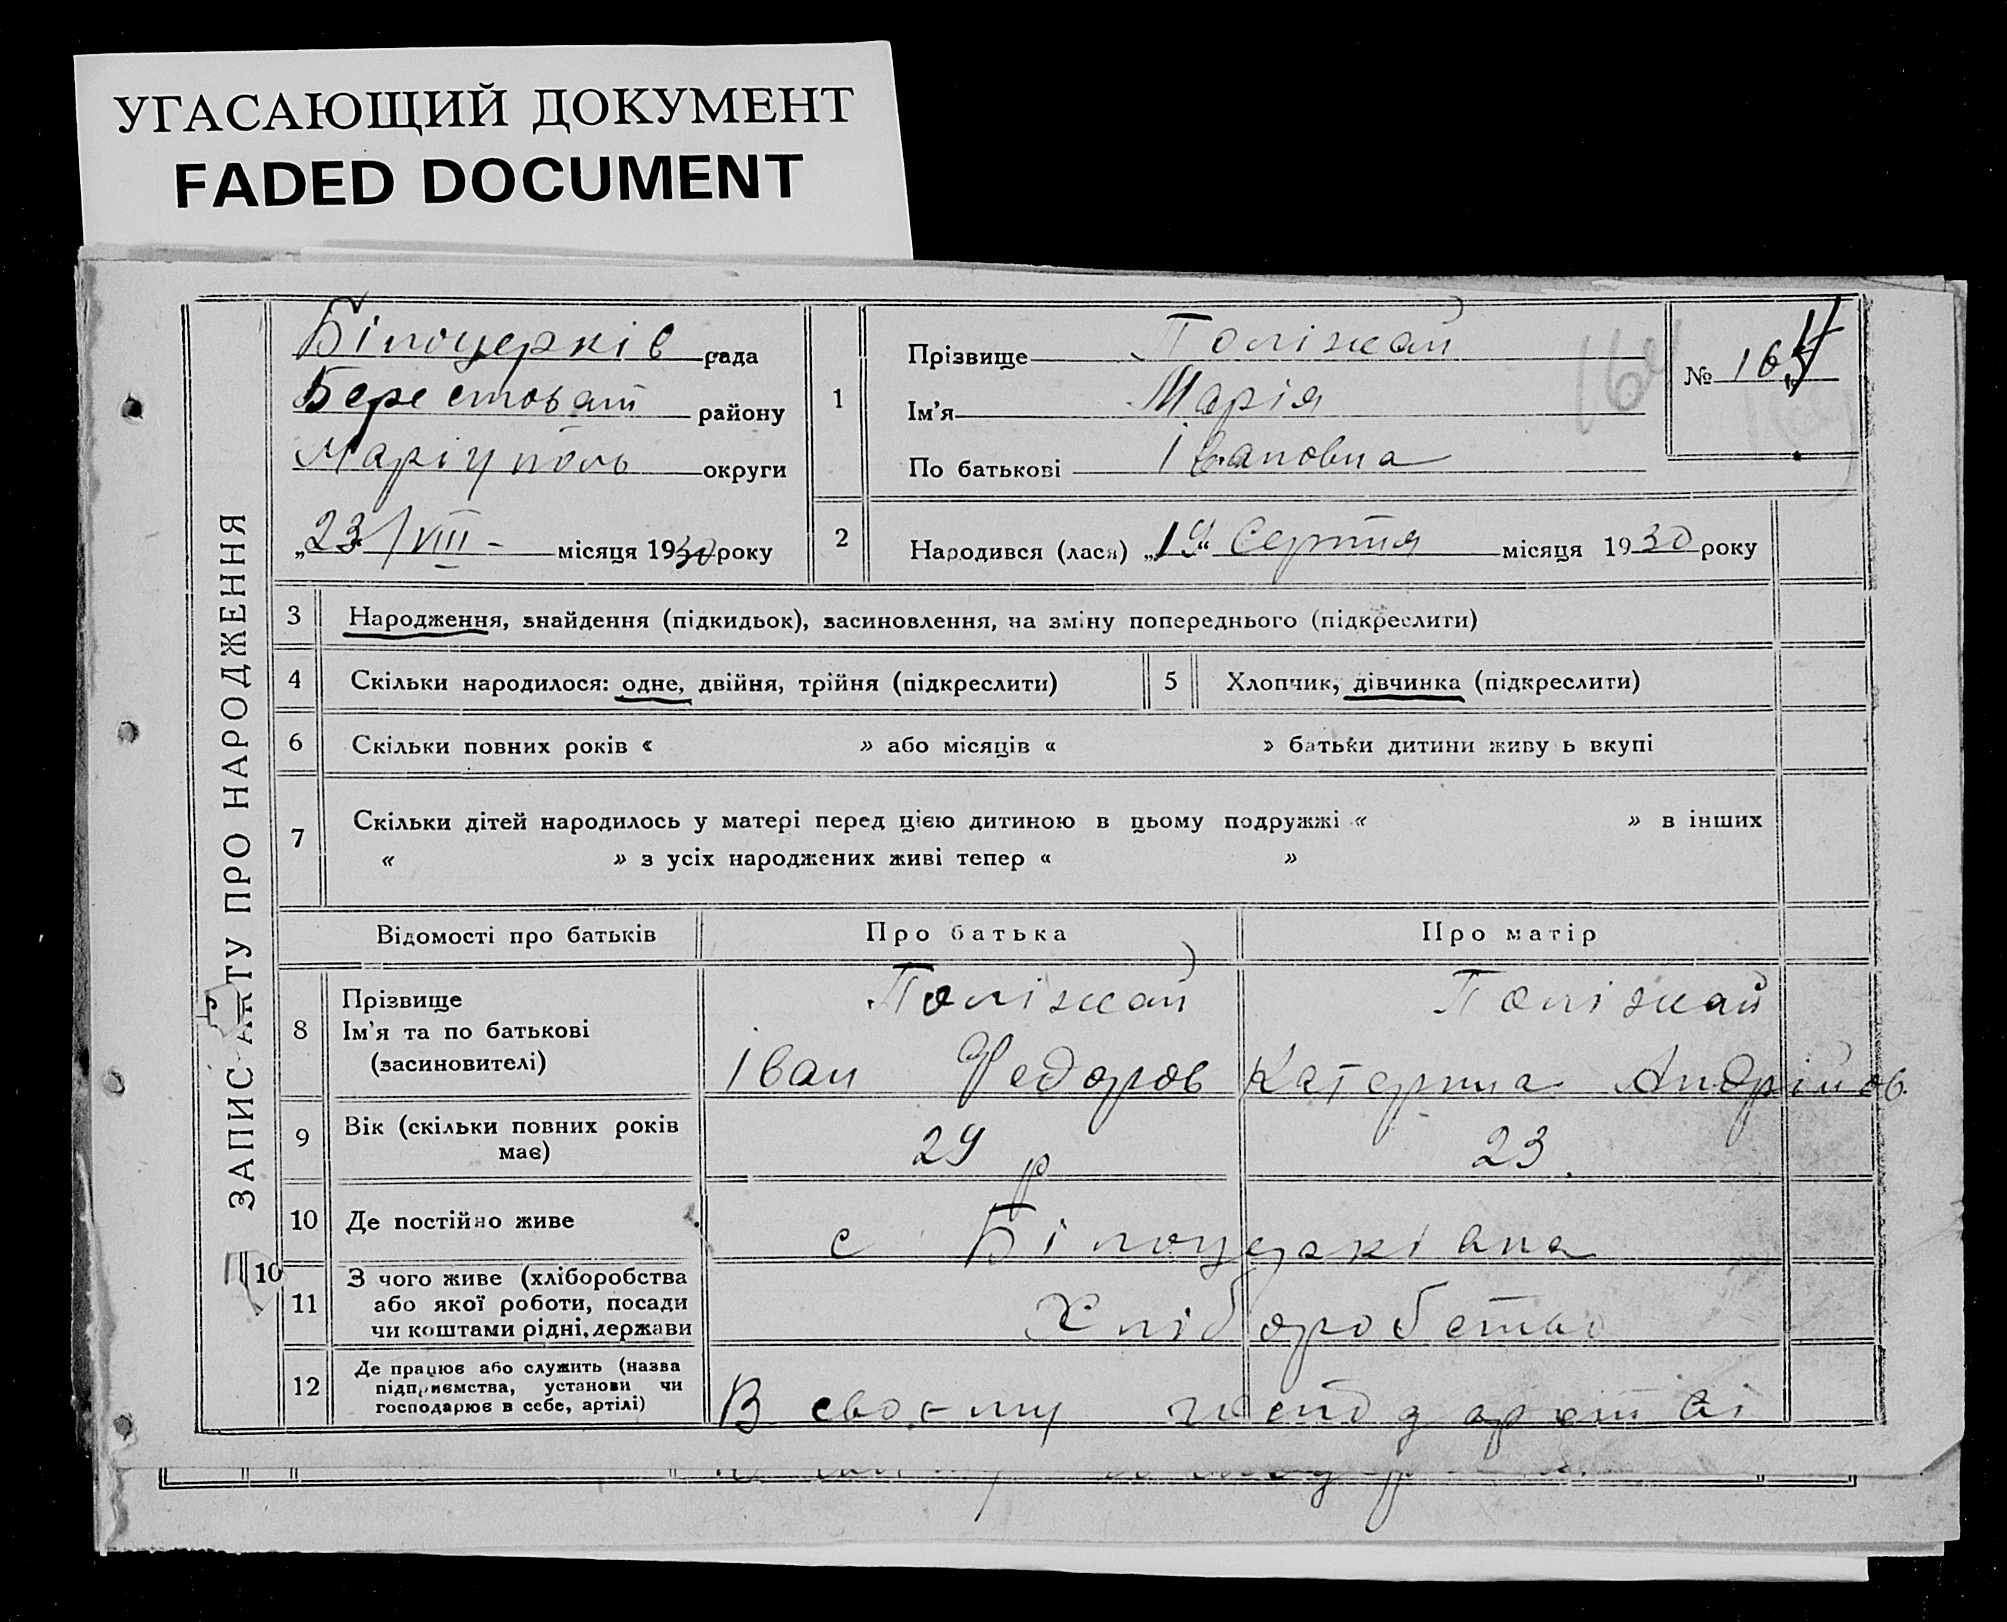 УГАСАЮЩИЙ ДОКУМЕНТ
FADED DOCUMENT
ЗАПИС АКТУ ПРО НАРОДЖЕННЯ
Білоцерків рада
Берестоват району
Маріуполь округи
„23/VIII- місяця 1930 року
1
Прізвище Поліжай
Ім'я Марія
По батькові Івановна
164
№ 164
2
Народився (лася) „19“ Серпня місяця 1930 року
3 Народження, знайдення (підкидьок), засиновлення, на зміну попереднього (підкреслити)
4 Скільки народилося: одне, двійня, трійня (підкреслити)
5 Хлопчик, дівчинка (підкреслити)
6 Скільки повних років « » або місяців « » батьки дитини живу ь вкупі
7 Скільки дітей народилось у матері перед цією дитиною в цьому подружжі « » в інших
« » з усіх народжених живі тепер « »
Відомості про батьків Про батька Про матір
8 Прізвище Поліжай Поліжай
Ім'я та по батькові
(засиновителі) Іван Федоров Катерина Андрійов.
9 Вік (скільки повних років
має) 29 р 23.
10 Де постійно живе с Білоцерківка
11 З чого живе (хліборобства
або якої роботи, посади
чи коштами рідні, держави Хліборобство
12 Де працює або служить (назва
підприємства, установи чи
господарює в себе, артілі) В своєму
10